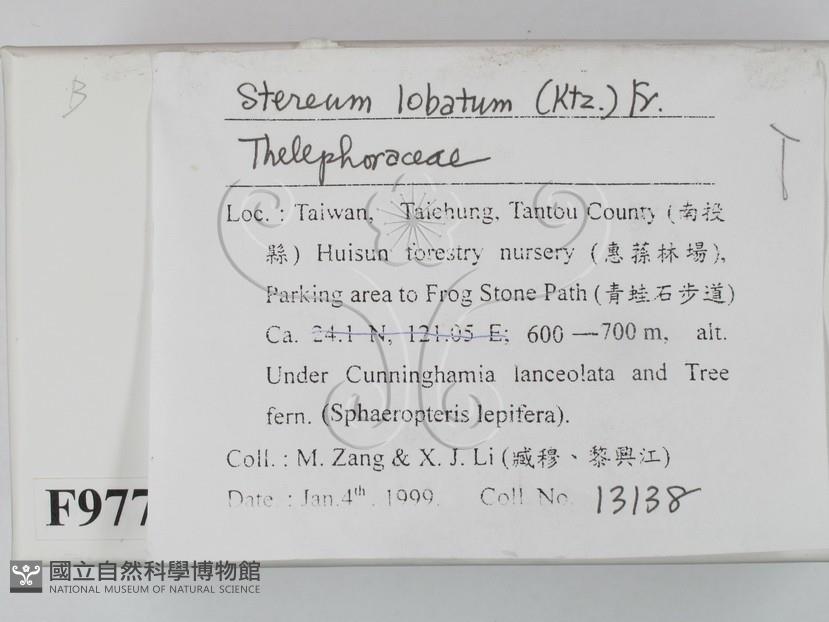 B
Stereum lobatum (Ktz.) Fr.
Thelephoraceae
Loc. : Taiwan, Taichung, Tantou County (南投
縣) Huisun forestry nursery (惠蓀林場),
Parking area to Frog Stone Path (青蛙石步道)
Ca. 24.1 N, 121.05 E; 600 — 700 m, alt.
Under Cunninghamia lanceolata and Tree
fern. (Sphaeropteris lepifera).
Coll. : M. Zang & X. J. Li (臧穆、黎興江)
Date : Jan.4th. 1999. Coll No. 13138
F977
國立自然科學博物館
NATIONAL MUSEUM OF NATURAL SCIENCE